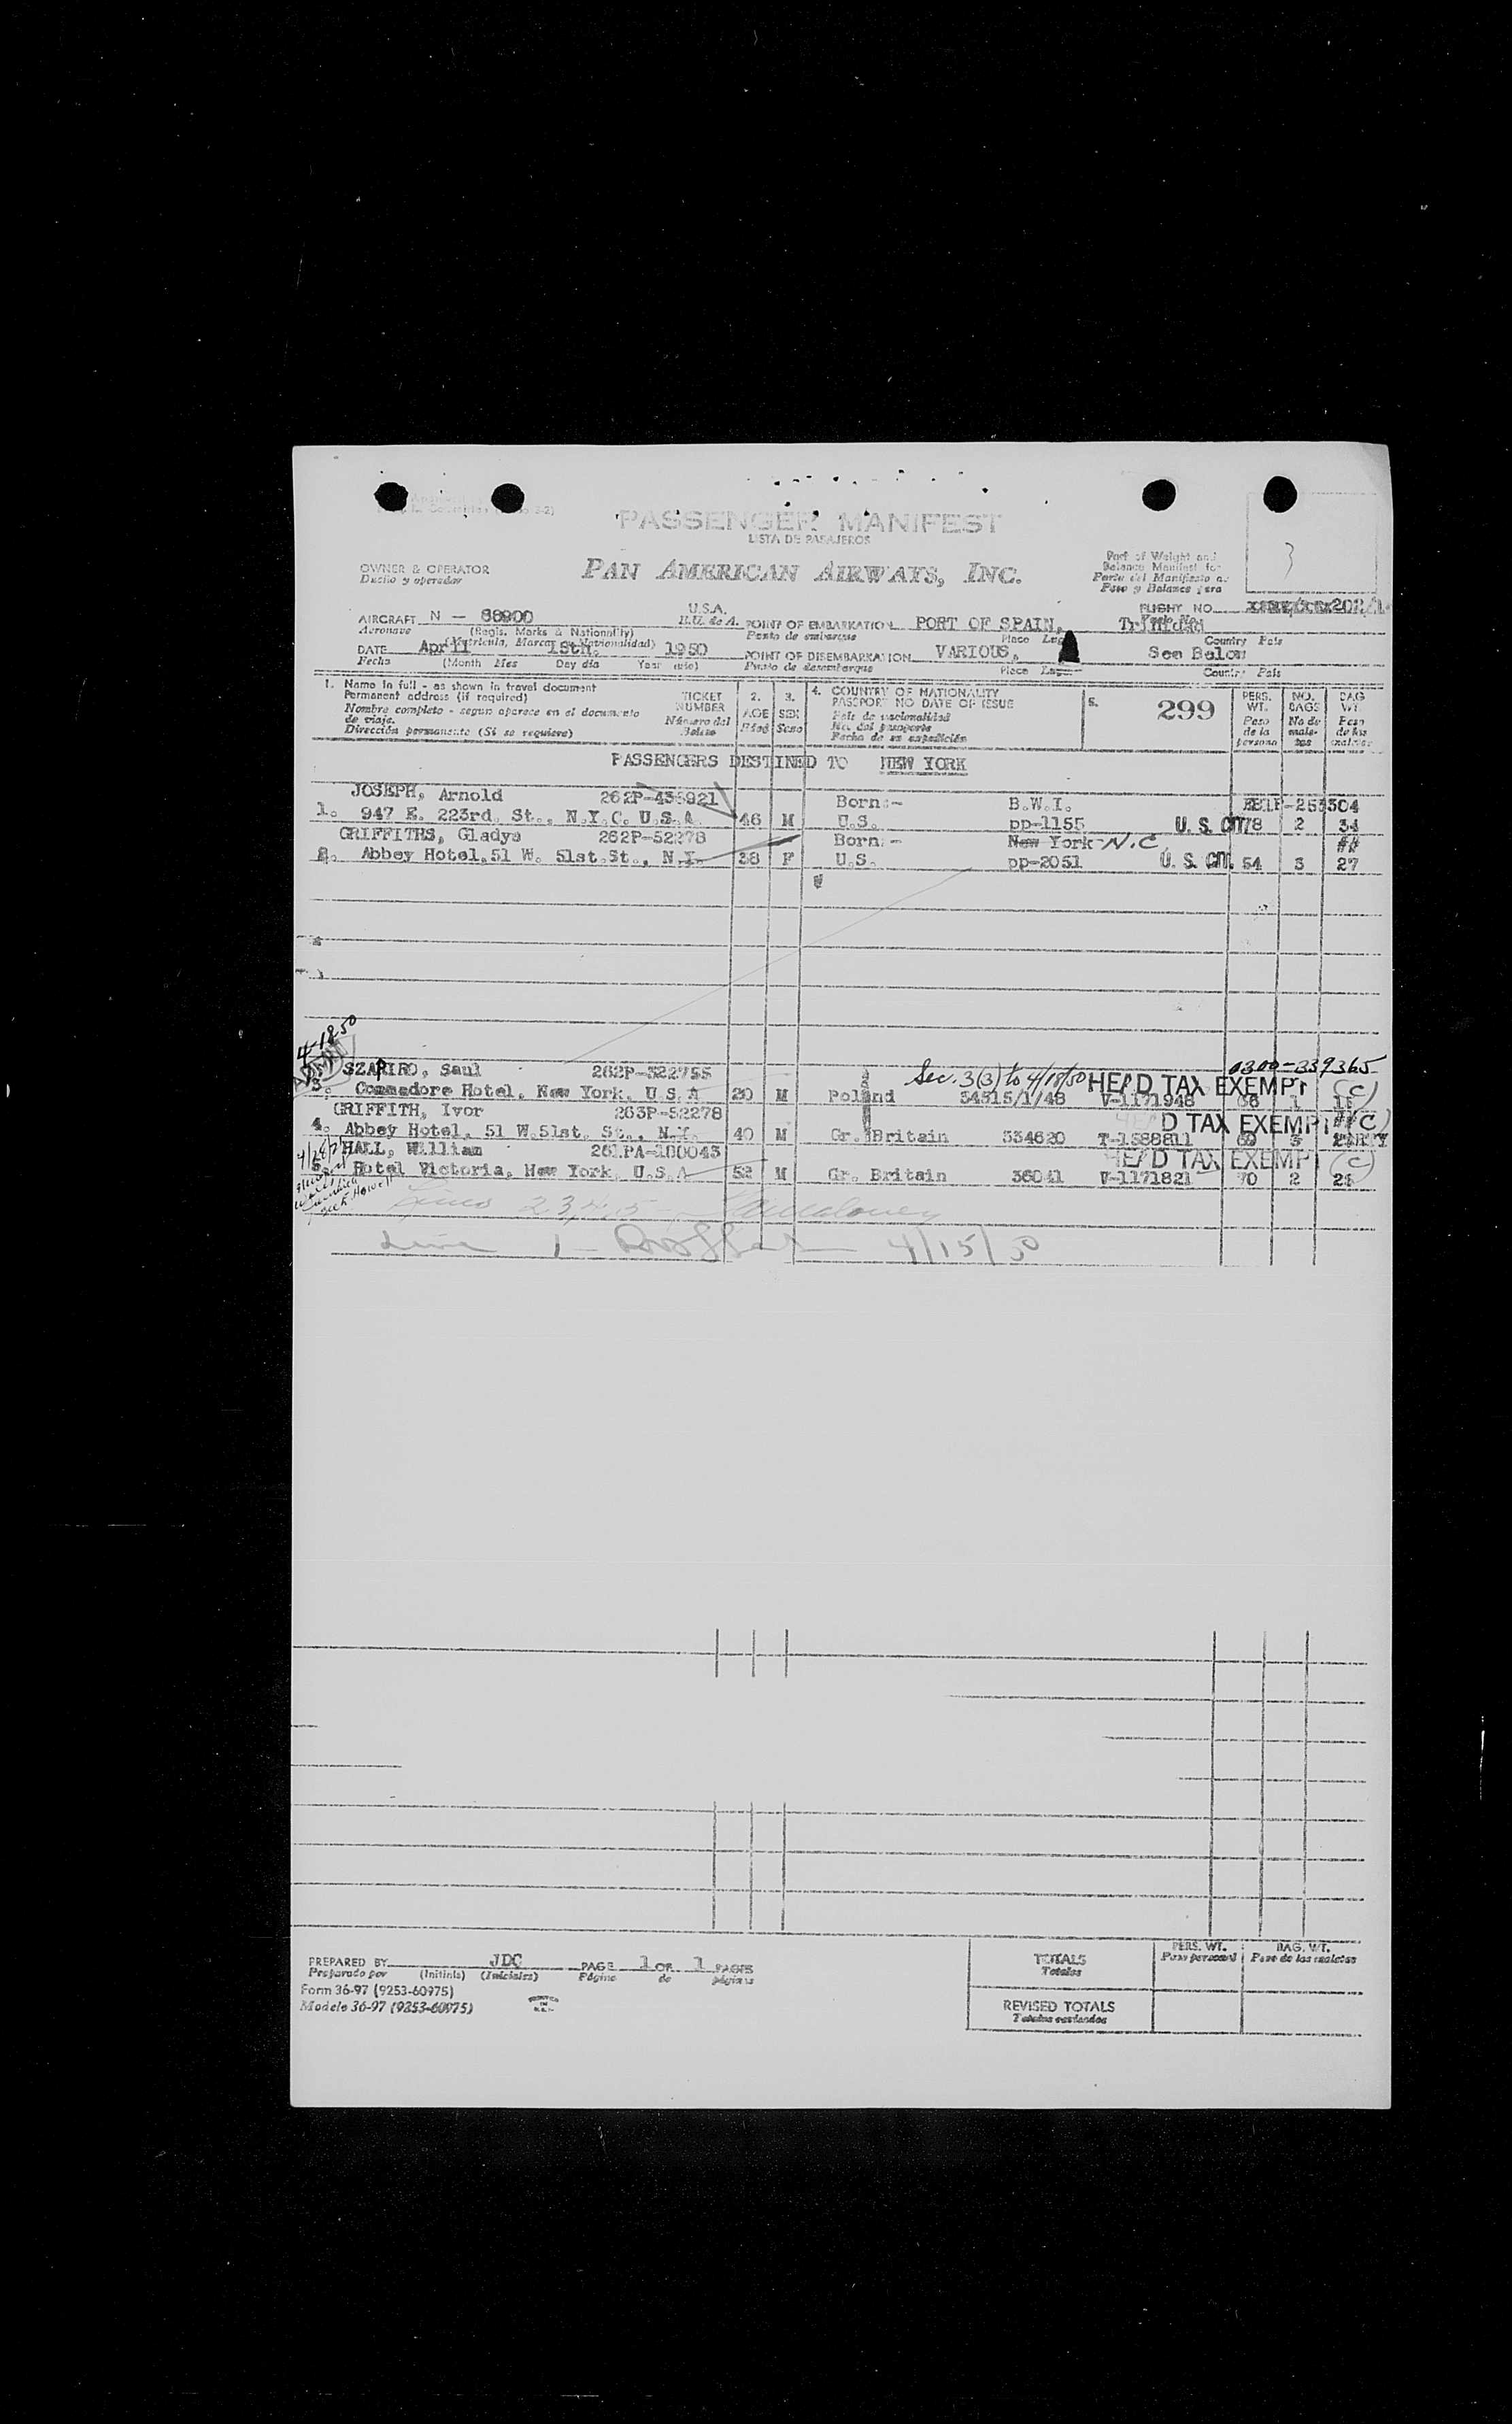 PASSENGER MANIFEST
LISTA DE PASAJEROS
OWNER & OPERATOR
Dueño y operador
PAN AMERICAN AIRWAYS, INC.
Part of Weight and
Balance Manifest for
Parte del Manifiesto de
Peso y Balance para
3
AIRCRAFT N - 88900 U.S.A.
Aeronave (Regis. Marks & Nationality) E.U. de A.
(Matricula, Marcas y Nationalidad)
POINT OF EMBARKATION PORT OF SPAIN, Trinidad
Punto de embarque Place Lugar Country Pais
FLIGHT NO. 202/
DATE April 15th. 1950
Fecha (Month Mes Day dia Year año)
POINT OF DISEMBARKATION VARIOUS, See Below
Punto de desembarque Place Lugar Country Pais
1. Name in full - as shown in travel document
Permanent address (if required)
Nombre completo - segun aparece en el documento
de viaje.
Dirección permanente (Si se requiere)
TICKET
NUMBER
Número del
Boleto
2.
AGE
Edad
3.
SEX
Sexo
4. COUNTRY OF NATIONALITY
PASSPORT NO DATE OF ISSUE
País de nacionalidad
No. del pasaporte
Fecha de su expedición
5.
299
PERS.
WT.
Peso
de la
persona
NO.
BAGS
No de
male-
tas
BAG
WT.
Peso
de las
maletas
PASSENGERS DESTINED TO NEW YORK
JOSEPH, Arnold 262P-435921 Born:- B.W.I.
1. 947 E. 223rd. St., N.Y.C. U.S.A. 46 M U.S. pp-1155 U.S. Cit. 78 2 34
GRIFFITHS, Gladys 262P-52278 Born:- New York N.C. ##
2. Abbey Hotel, 51 W. 51st. St., N.Y. 38 F U.S. pp-2051 U.S. Cit. 54 3 27
4-18-50
SZAPIRO, Saul 262P-322755 Sec. 3(3) to 4/18/50 HEAD TAX EXEMPT (C) 0300-339365
3. Commadore Hotel, New York, U.S.A 20 M Poland 34515/1/48 V-1171948 1
GRIFFITH, Ivor 263P-52278 HEAD TAX EXEMPT (C)
4. Abbey Hotel, 51 W. 51st. St., N.Y. 40 M Gr. Britain 334620 T-1588811 3
HALL, William 261PA-180043 HEAD TAX EXEMPT (C)
5. Hotel Victoria, New York, U.S.A 52 M Gr. Britain 36041 V-1171821 70 2
Lines 2,3,4,5
Line 1 - 4/15/50
PREPARED BY JDC PAGE 1 OF 1 PAGES
Preparado por (Initials) (Iniciales) Página de páginas
Form 36-97 (9253-60975)
Modelo 36-97 (9253-60975)
TOTALS
Totales
PERS. WT.
Peso personal
BAG. WT.
Peso de las maletas
REVISED TOTALS
Totales revisados